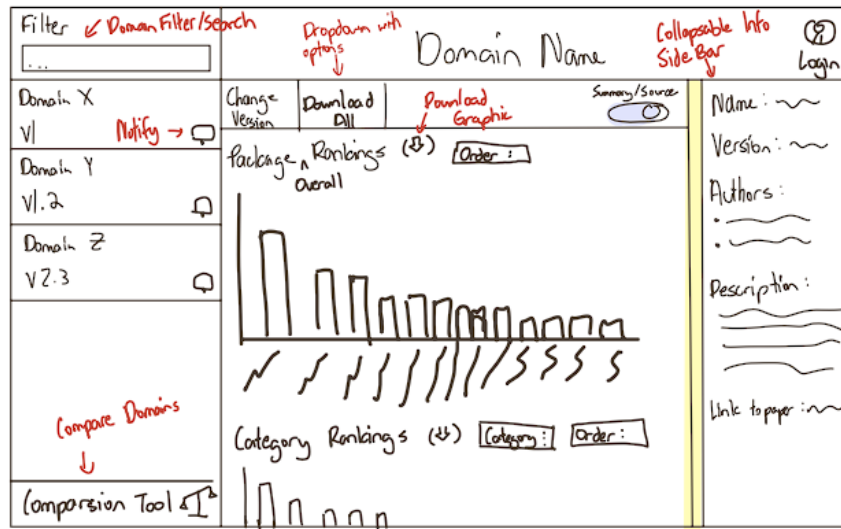 Filter
Domain Filter/Search
...
Dropdown with
options
Domain Name
Collapsable Info
Side Bar
Login
Domain X
V1
Notify →
Domain Y
V1.2
Domain Z
V2.3
Compare Domains
Comparsion Tool
Change
Version
Download
All
Download
Graphic
Summary/Source
Package ^ Rankings (⇩) Order :
Overall
Category Rankings (⇩) Category : Order :
Name :
Version :
Authors :
Description :
Link to paper :